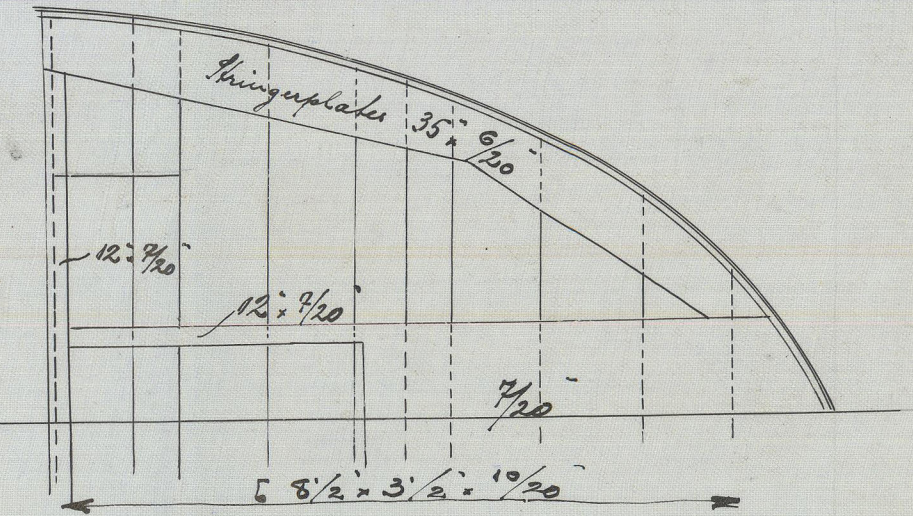 Stringerplates 35" x 6/20"
12" x 7/20"
12" x 7/20"
7/20"
[ 8 1/2" x 3 1/2" x 10/20"